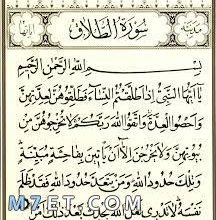 سُورَةُ الطَّلَاقِ
بِسْمِ اللَّهِ الرَّحْمَٰنِ الرَّحِيمِ
يَا أَيُّهَا النَّبِيُّ إِذَا طَلَّقْتُمُ النِّسَاءَ فَطَلِّقُوهُنَّ لِعِدَّتِهِنَّ
وَأَحْصُوا الْعِدَّةَ وَاتَّقُوا اللَّهَ رَبَّكُمْ لَا تُخْرِجُوهُنَّ مِنْ
بُيُوتِهِنَّ وَلَا يَخْرُجْنَ إِلَّا أَنْ يَأْتِينَ بِفَاحِشَةٍ مُبَيِّنَةٍ
وَتِلْكَ حُدُودُ اللَّهِ وَمَنْ يَتَعَدَّ حُدُودَ اللَّهِ فَقَدْ ظَلَمَ
نَفْسَهُ لَا تَدْرِي لَعَلَّ اللَّهَ يُحْدِثُ بَعْدَ ذَٰلِكَ
M7ET.COM